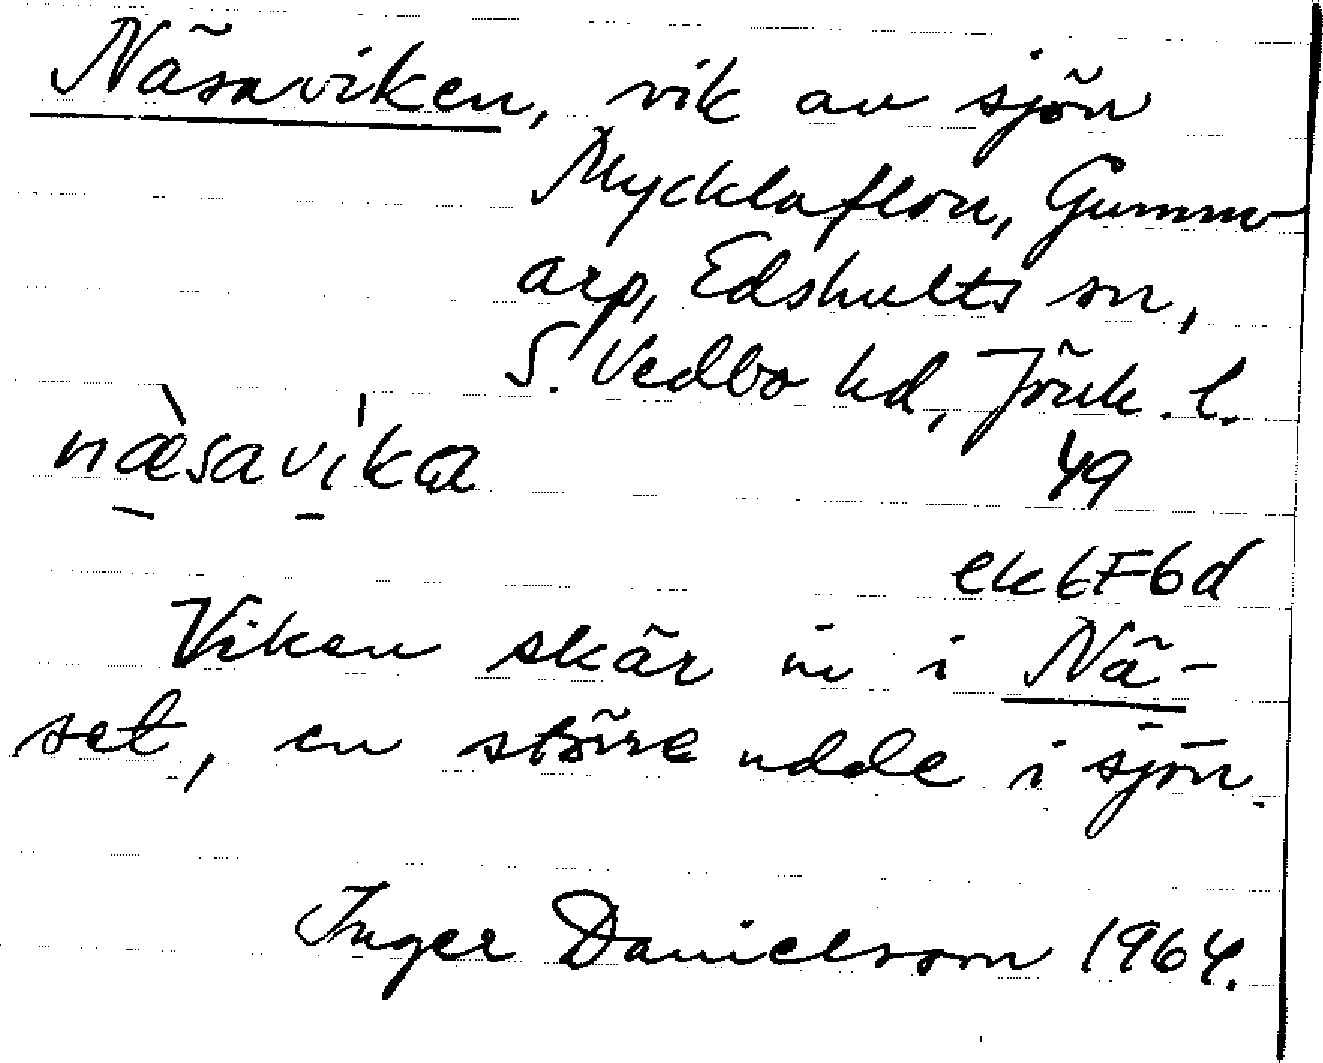 Näsaviken, vik av sjön
Mycklaflon, Gummarp
arp, Edshults sn,
S. Vedbo hd, Jönk. l.
næ̀savi̍ka 49
ek 6F6d
Viken skär in i Nä-
set, en större udde i sjön.
Inger Danielsson 1964.